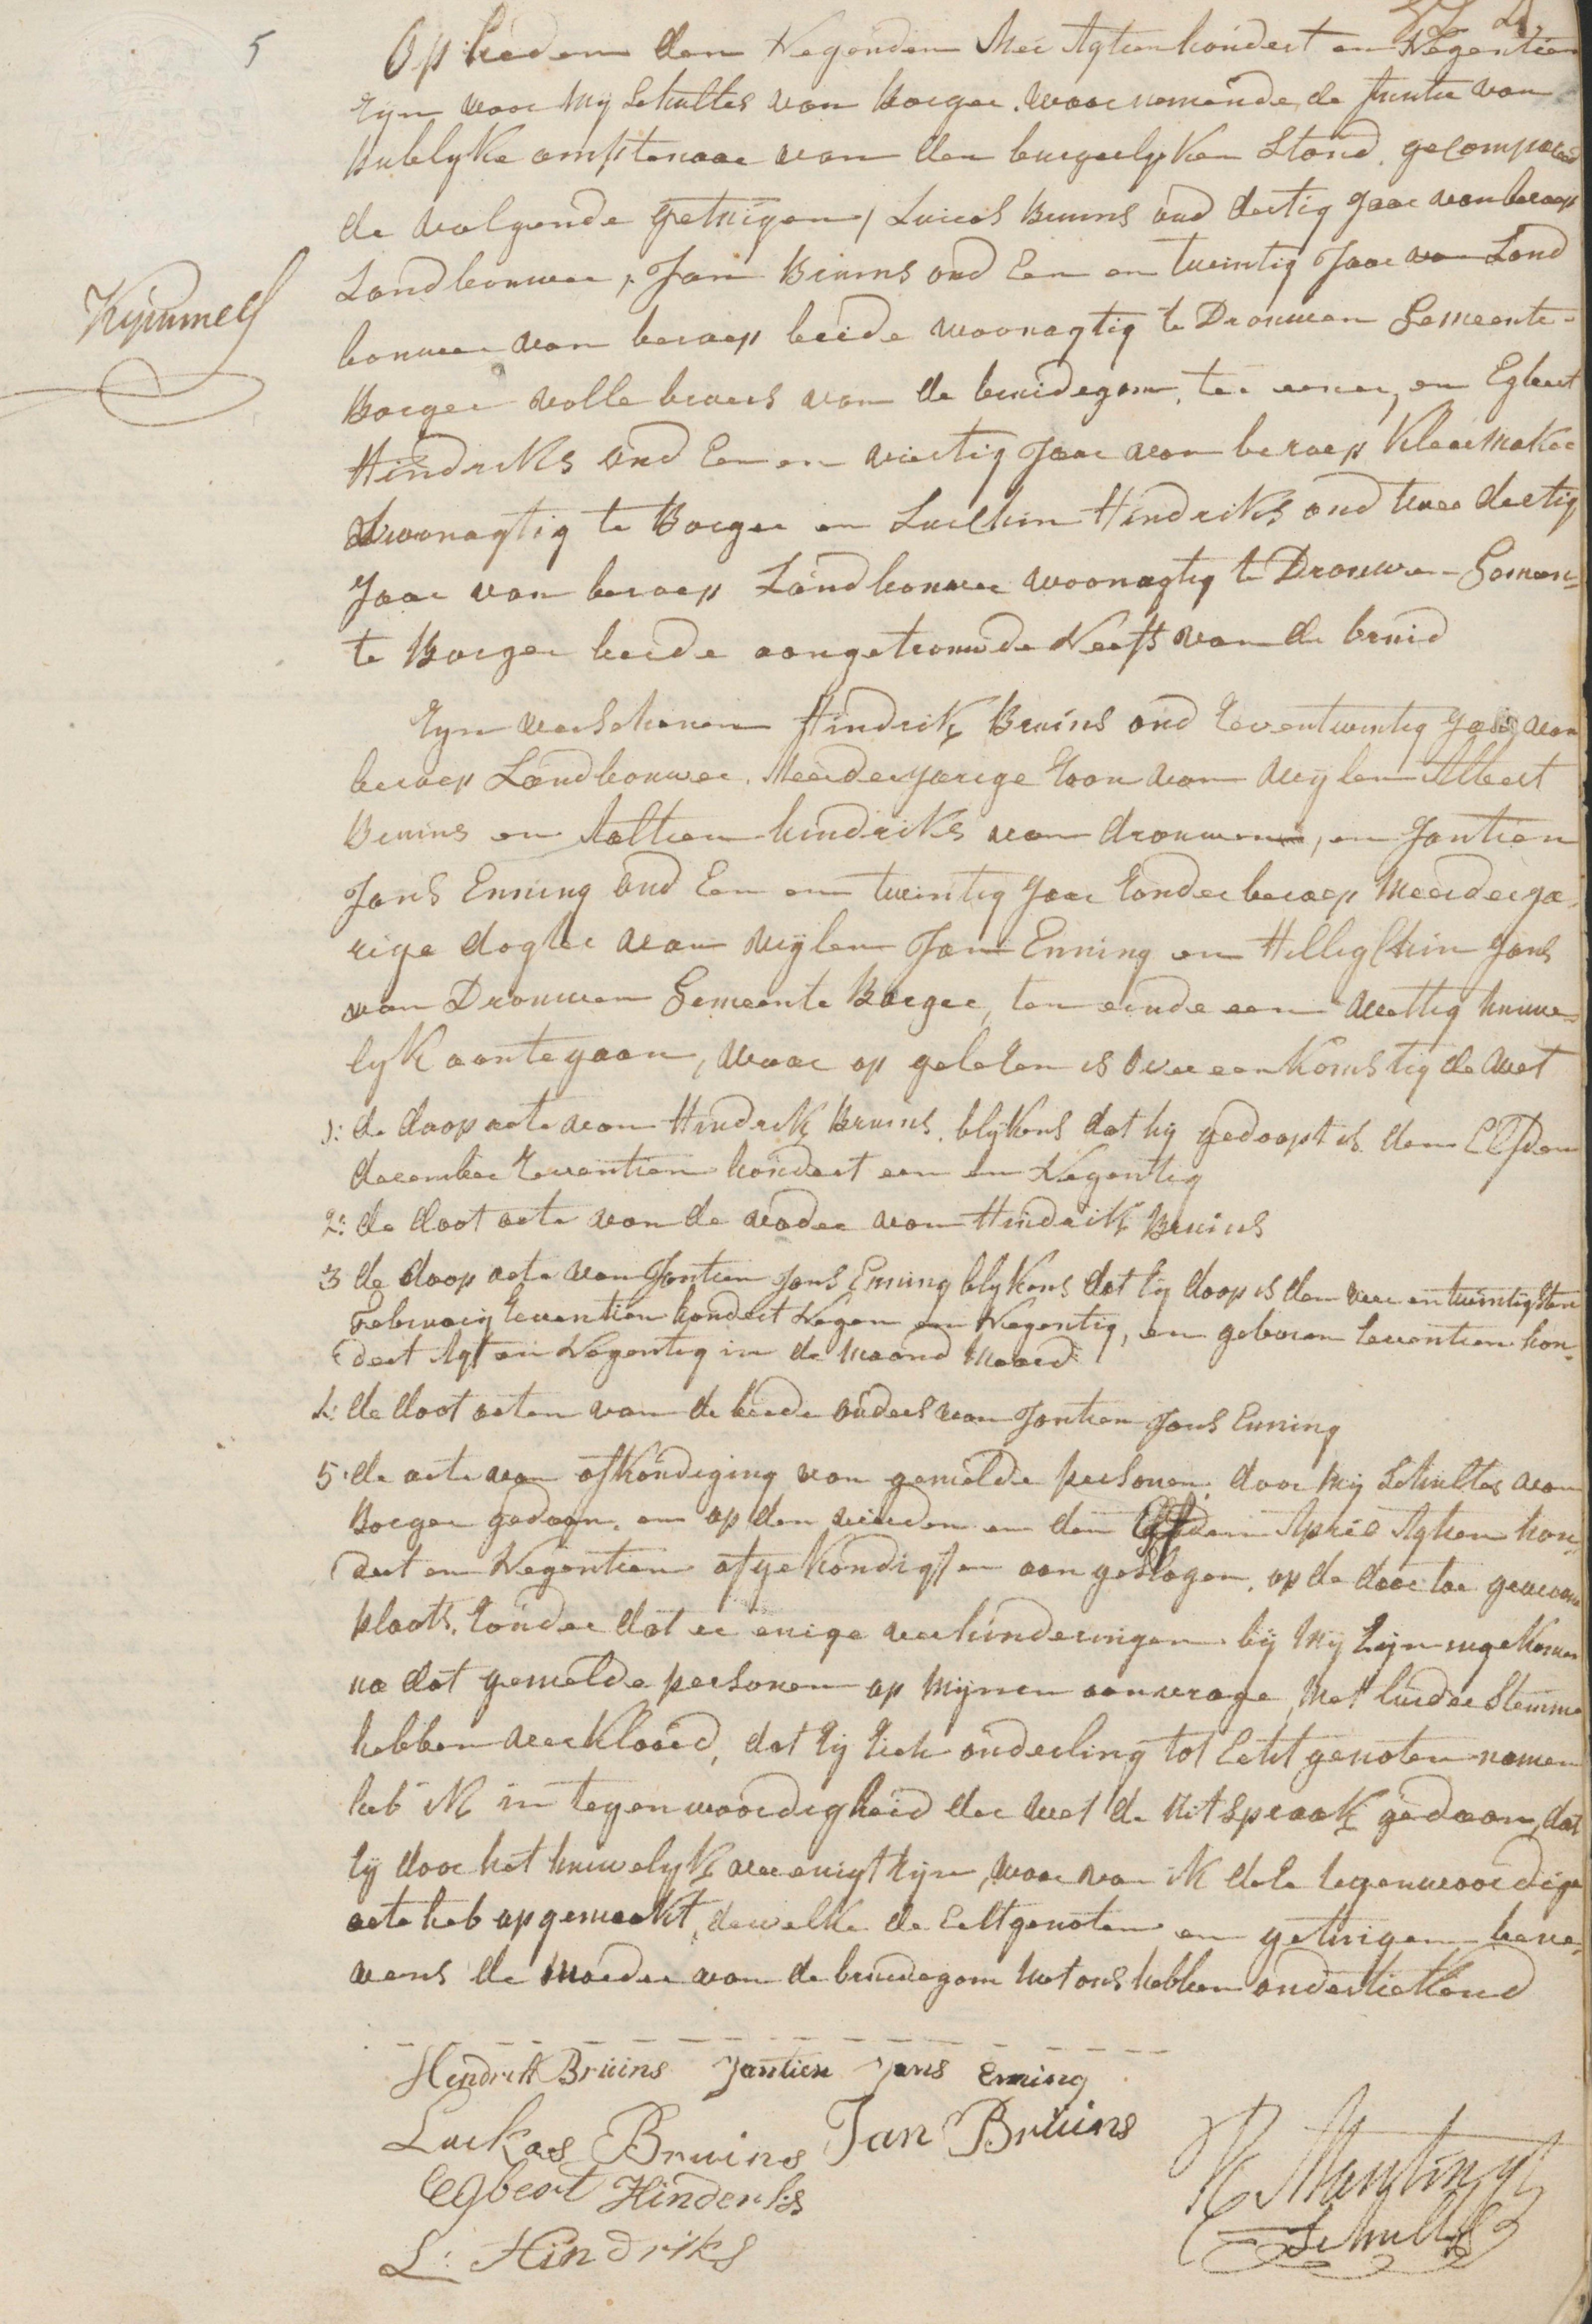 5
Op heden den Negenden Mei Agtienhondert en Negentien
Zyn voor Mij Schultes van Borger waarnemende de functie van
Publyke amptenaar van den burgerlyken Stand, gecompareerd
de volgende getuigen, Lucas Bruins oud dertig Jaar van beroep
Landbouwer, Jan Bruins oud Een en twintig Jaar van Land
bouwer van beroep beide woonagtig te Drouwen Gemeente
Borger volle broers van de bruidegom, ter eener, en Egbert
Hindriks oud Een en viertig Jaar van beroep Kleermaker
woonagtig te Borger en Luichin Hindriks oud twee dertig
Jaar van beroep Landbouwer woonagtig te Drouwen Gemeen-
te Borger beide aangetrouwde Neefs van de bruid
Zyn verschenen Hindrik Bruins oud Zeventwintig Jaar van
beroep Landbouwer. Meerderjarige Zoon van Wijlen Albert
Bruins en Aaltien hindriks van drouwen, en Jantien
Jans Enning oud Een en twintig Jaar Zonder beroep Meerderja-
rige dogter van Wijlen Jan Enning en Hillighin Jans
van Drouwen Gemeente Borger, ten einde een Wettig huwe-
lyk aantegaan, waar op gelezen is Overeenkomstig de Wet
1: de doop acte van Hindrik Bruins, blykens dat hij gedoopt is den Elfden
december Zeventien hondert een en Negentig
2: de doot acte van de vader van Hindrik Bruins
3 de doop acte van Jantien Jans Enning blykens dat Zij doop is den vier en twintigsten
Februarij Zeventien hondert Negen en Negentig, en geboren Zeventien hon-
dert Agt en Negentig in de Maand
4: de doot acten van de beide ouders van Jantien Jans Enning
5: de acte van afkondiging van gemelde personen, door Mij Schultes van
Borger gedaan, en op den vierden en den Elfden April Agtien hon-
dert en Negentien afgekondigt en aangeslagen, op de daar toe gewoone
plaats, Zonder dat er enige verhinderingen bij Mij Zijn ingekomen
na dat gemelde personen op Mijnen aanvrage, Met luider Stemme
hebben verklaard, dat Zij Zich onderling tot Echtgenoten namen
heb ik in tegenwoordigheid der Wet de Uitspraak gedaan, dat
Zij door het huwelyk vereenigt Zijn, waar van ik deze tegenwoordige
acte heb opgemaakt, dewelke de Egtgenoten en getuigen bene-
vens de Moeder van de bruidegom Met ons hebben ondertiekend
Kymmell
Hendrik Bruins Jantien Jans Enning
Luckas Bruins Jan Bruins
Egbert Hinderks
L: Hindriks
Schultes